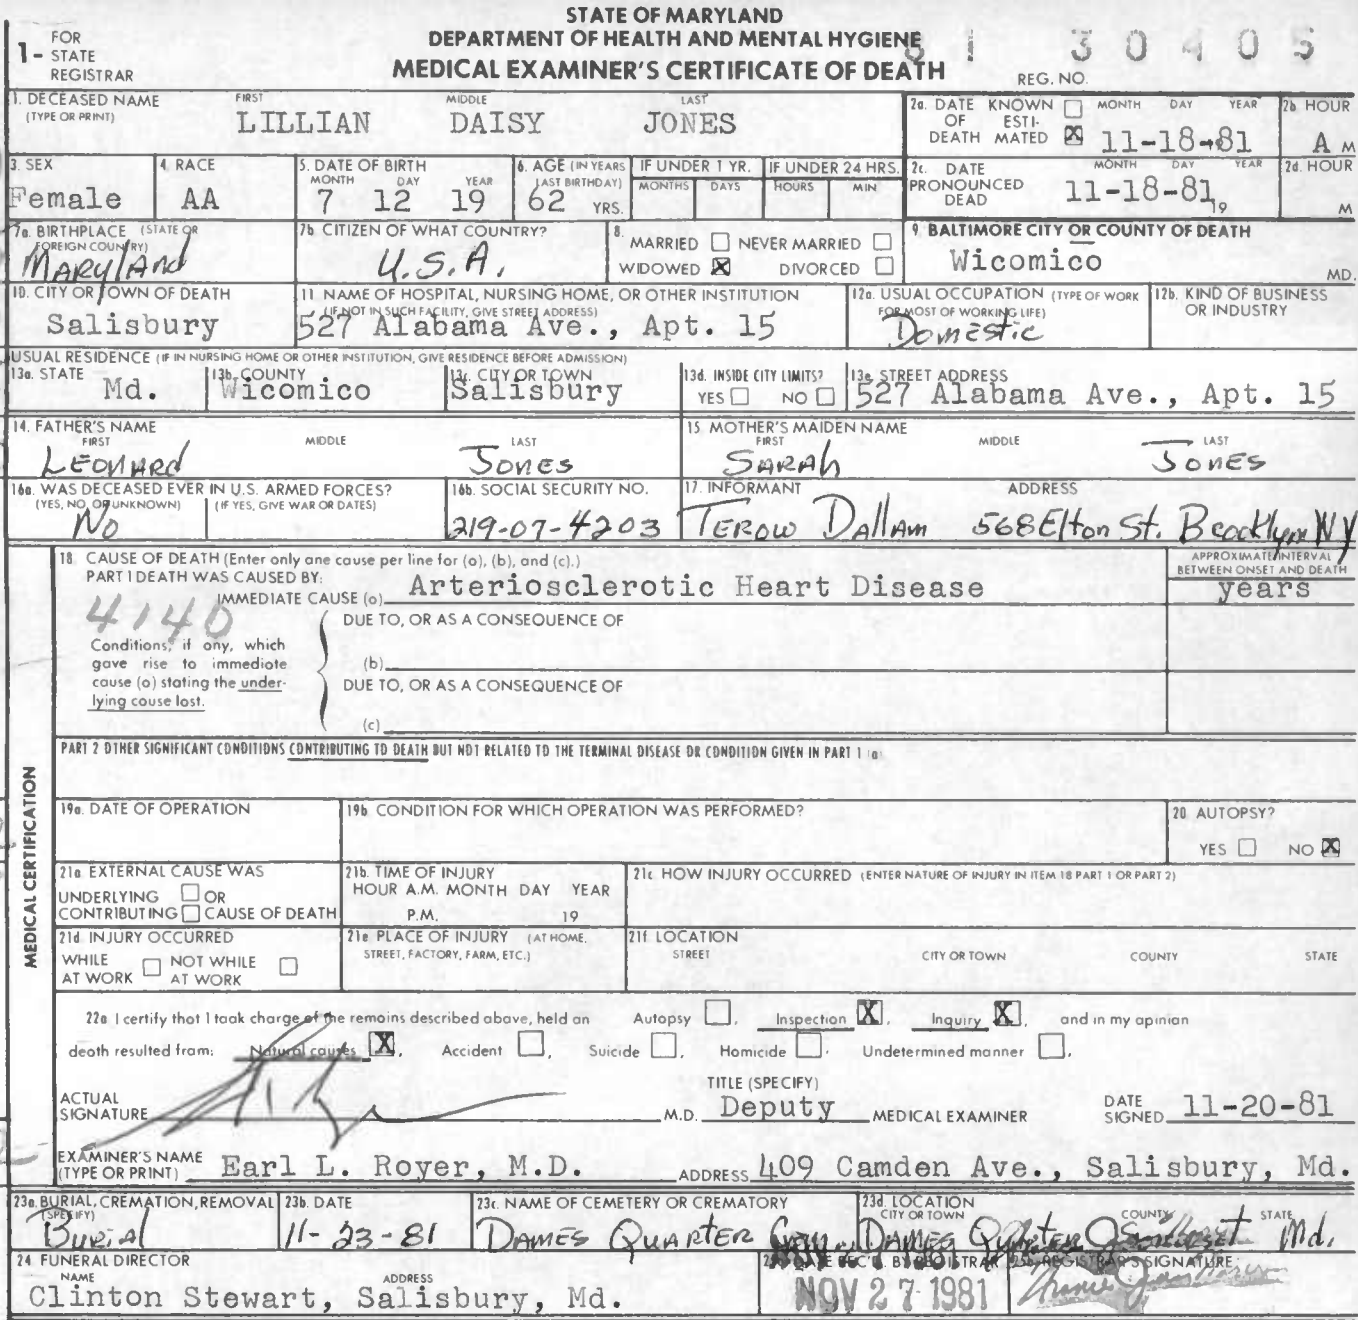 STATE OF MARYLAND
DEPARTMENT OF HEALTH AND MENTAL HYGIENE
MEDICAL EXAMINER'S CERTIFICATE OF DEATH
1- FOR STATE REGISTRAR
REG. NO. 81 30405
1. DECEASED NAME (TYPE OR PRINT) FIRST MIDDLE LAST
LILLIAN DAISY JONES
2a. DATE OF DEATH KNOWN ☐ ESTIMATED ☒ MONTH DAY YEAR
11-18-81
2b HOUR
A M
3. SEX
Female
4. RACE
AA
5. DATE OF BIRTH MONTH DAY YEAR
7 12 19
6. AGE (IN YEARS LAST BIRTHDAY)
62 YRS.
IF UNDER 1 YR. MONTHS DAYS
IF UNDER 24 HRS. HOURS MIN
2c. DATE PRONOUNCED DEAD MONTH DAY YEAR
11-18-81 19
2d. HOUR
M
7a. BIRTHPLACE (STATE OR FOREIGN COUNTRY)
Maryland
7b CITIZEN OF WHAT COUNTRY?
U.S.A.
8. MARRIED ☐ NEVER MARRIED ☐
WIDOWED ☒ DIVORCED ☐
9. BALTIMORE CITY OR COUNTY OF DEATH
Wicomico MD.
10. CITY OR TOWN OF DEATH
Salisbury
11. NAME OF HOSPITAL, NURSING HOME, OR OTHER INSTITUTION
(IF NOT IN SUCH FACILITY, GIVE STREET ADDRESS)
527 Alabama Ave., Apt. 15
12a. USUAL OCCUPATION (TYPE OF WORK FOR MOST OF WORKING LIFE)
Domestic
12b. KIND OF BUSINESS OR INDUSTRY
USUAL RESIDENCE (IF IN NURSING HOME OR OTHER INSTITUTION, GIVE RESIDENCE BEFORE ADMISSION)
13a. STATE
Md.
13b. COUNTY
Wicomico
13c. CITY OR TOWN
Salisbury
13d. INSIDE CITY LIMITS?
YES ☐ NO ☐
13e. STREET ADDRESS
527 Alabama Ave., Apt. 15
14. FATHER'S NAME FIRST MIDDLE LAST
Leonard Jones
15. MOTHER'S MAIDEN NAME FIRST MIDDLE LAST
Sarah Jones
16a. WAS DECEASED EVER IN U.S. ARMED FORCES?
(YES, NO, OR UNKNOWN) (IF YES, GIVE WAR OR DATES)
No
16b. SOCIAL SECURITY NO.
219-07-4203
17. INFORMANT ADDRESS
Terow Dallam 568 Elton St. Brooklyn NY
MEDICAL CERTIFICATION
18. CAUSE OF DEATH (Enter only one cause per line for (a), (b), and (c).)
PART I DEATH WAS CAUSED BY:
IMMEDIATE CAUSE (a) Arteriosclerotic Heart Disease
APPROXIMATE INTERVAL BETWEEN ONSET AND DEATH
years
4140
DUE TO, OR AS A CONSEQUENCE OF
Conditions, if any, which gave rise to immediate cause (a) stating the underlying cause last.
(b)
DUE TO, OR AS A CONSEQUENCE OF
(c)
PART 2 OTHER SIGNIFICANT CONDITIONS CONTRIBUTING TO DEATH BUT NOT RELATED TO THE TERMINAL DISEASE OR CONDITION GIVEN IN PART 1 (a)
19a. DATE OF OPERATION
19b. CONDITION FOR WHICH OPERATION WAS PERFORMED?
20 AUTOPSY?
YES ☐ NO ☒
21a. EXTERNAL CAUSE WAS
UNDERLYING ☐ OR
CONTRIBUTING ☐ CAUSE OF DEATH
21b. TIME OF INJURY
HOUR A.M. MONTH DAY YEAR
P.M. 19
21c HOW INJURY OCCURRED (ENTER NATURE OF INJURY IN ITEM 18 PART 1 OR PART 2)
21d INJURY OCCURRED
WHILE AT WORK ☐ NOT WHILE AT WORK ☐
21e PLACE OF INJURY (AT HOME, STREET, FACTORY, FARM, ETC.)
21f. LOCATION
STREET CITY OR TOWN COUNTY STATE
22a I certify that I took charge of the remains described above, held an Autopsy ☐, Inspection ☒, Inquiry ☒, and in my opinion
death resulted from: Natural causes ☒, Accident ☐, Suicide ☐, Homicide ☐, Undetermined manner ☐,
ACTUAL SIGNATURE
M.D. TITLE (SPECIFY) Deputy MEDICAL EXAMINER
DATE SIGNED 11-20-81
EXAMINER'S NAME (TYPE OR PRINT) Earl L. Royer, M.D.
ADDRESS 409 Camden Ave., Salisbury, Md.
23a. BURIAL, CREMATION, REMOVAL (SPECIFY)
Burial
23b. DATE
11-23-81
23c. NAME OF CEMETERY OR CREMATORY
Dames Quarter Cem.
23d. LOCATION CITY OR TOWN COUNTY STATE
Dames Quarter Somerset Md.
24 FUNERAL DIRECTOR NAME ADDRESS
Clinton Stewart, Salisbury, Md.
25a. DATE REC'D. BY REGISTRAR
NOV 27 1981
25b. REGISTRAR'S SIGNATURE